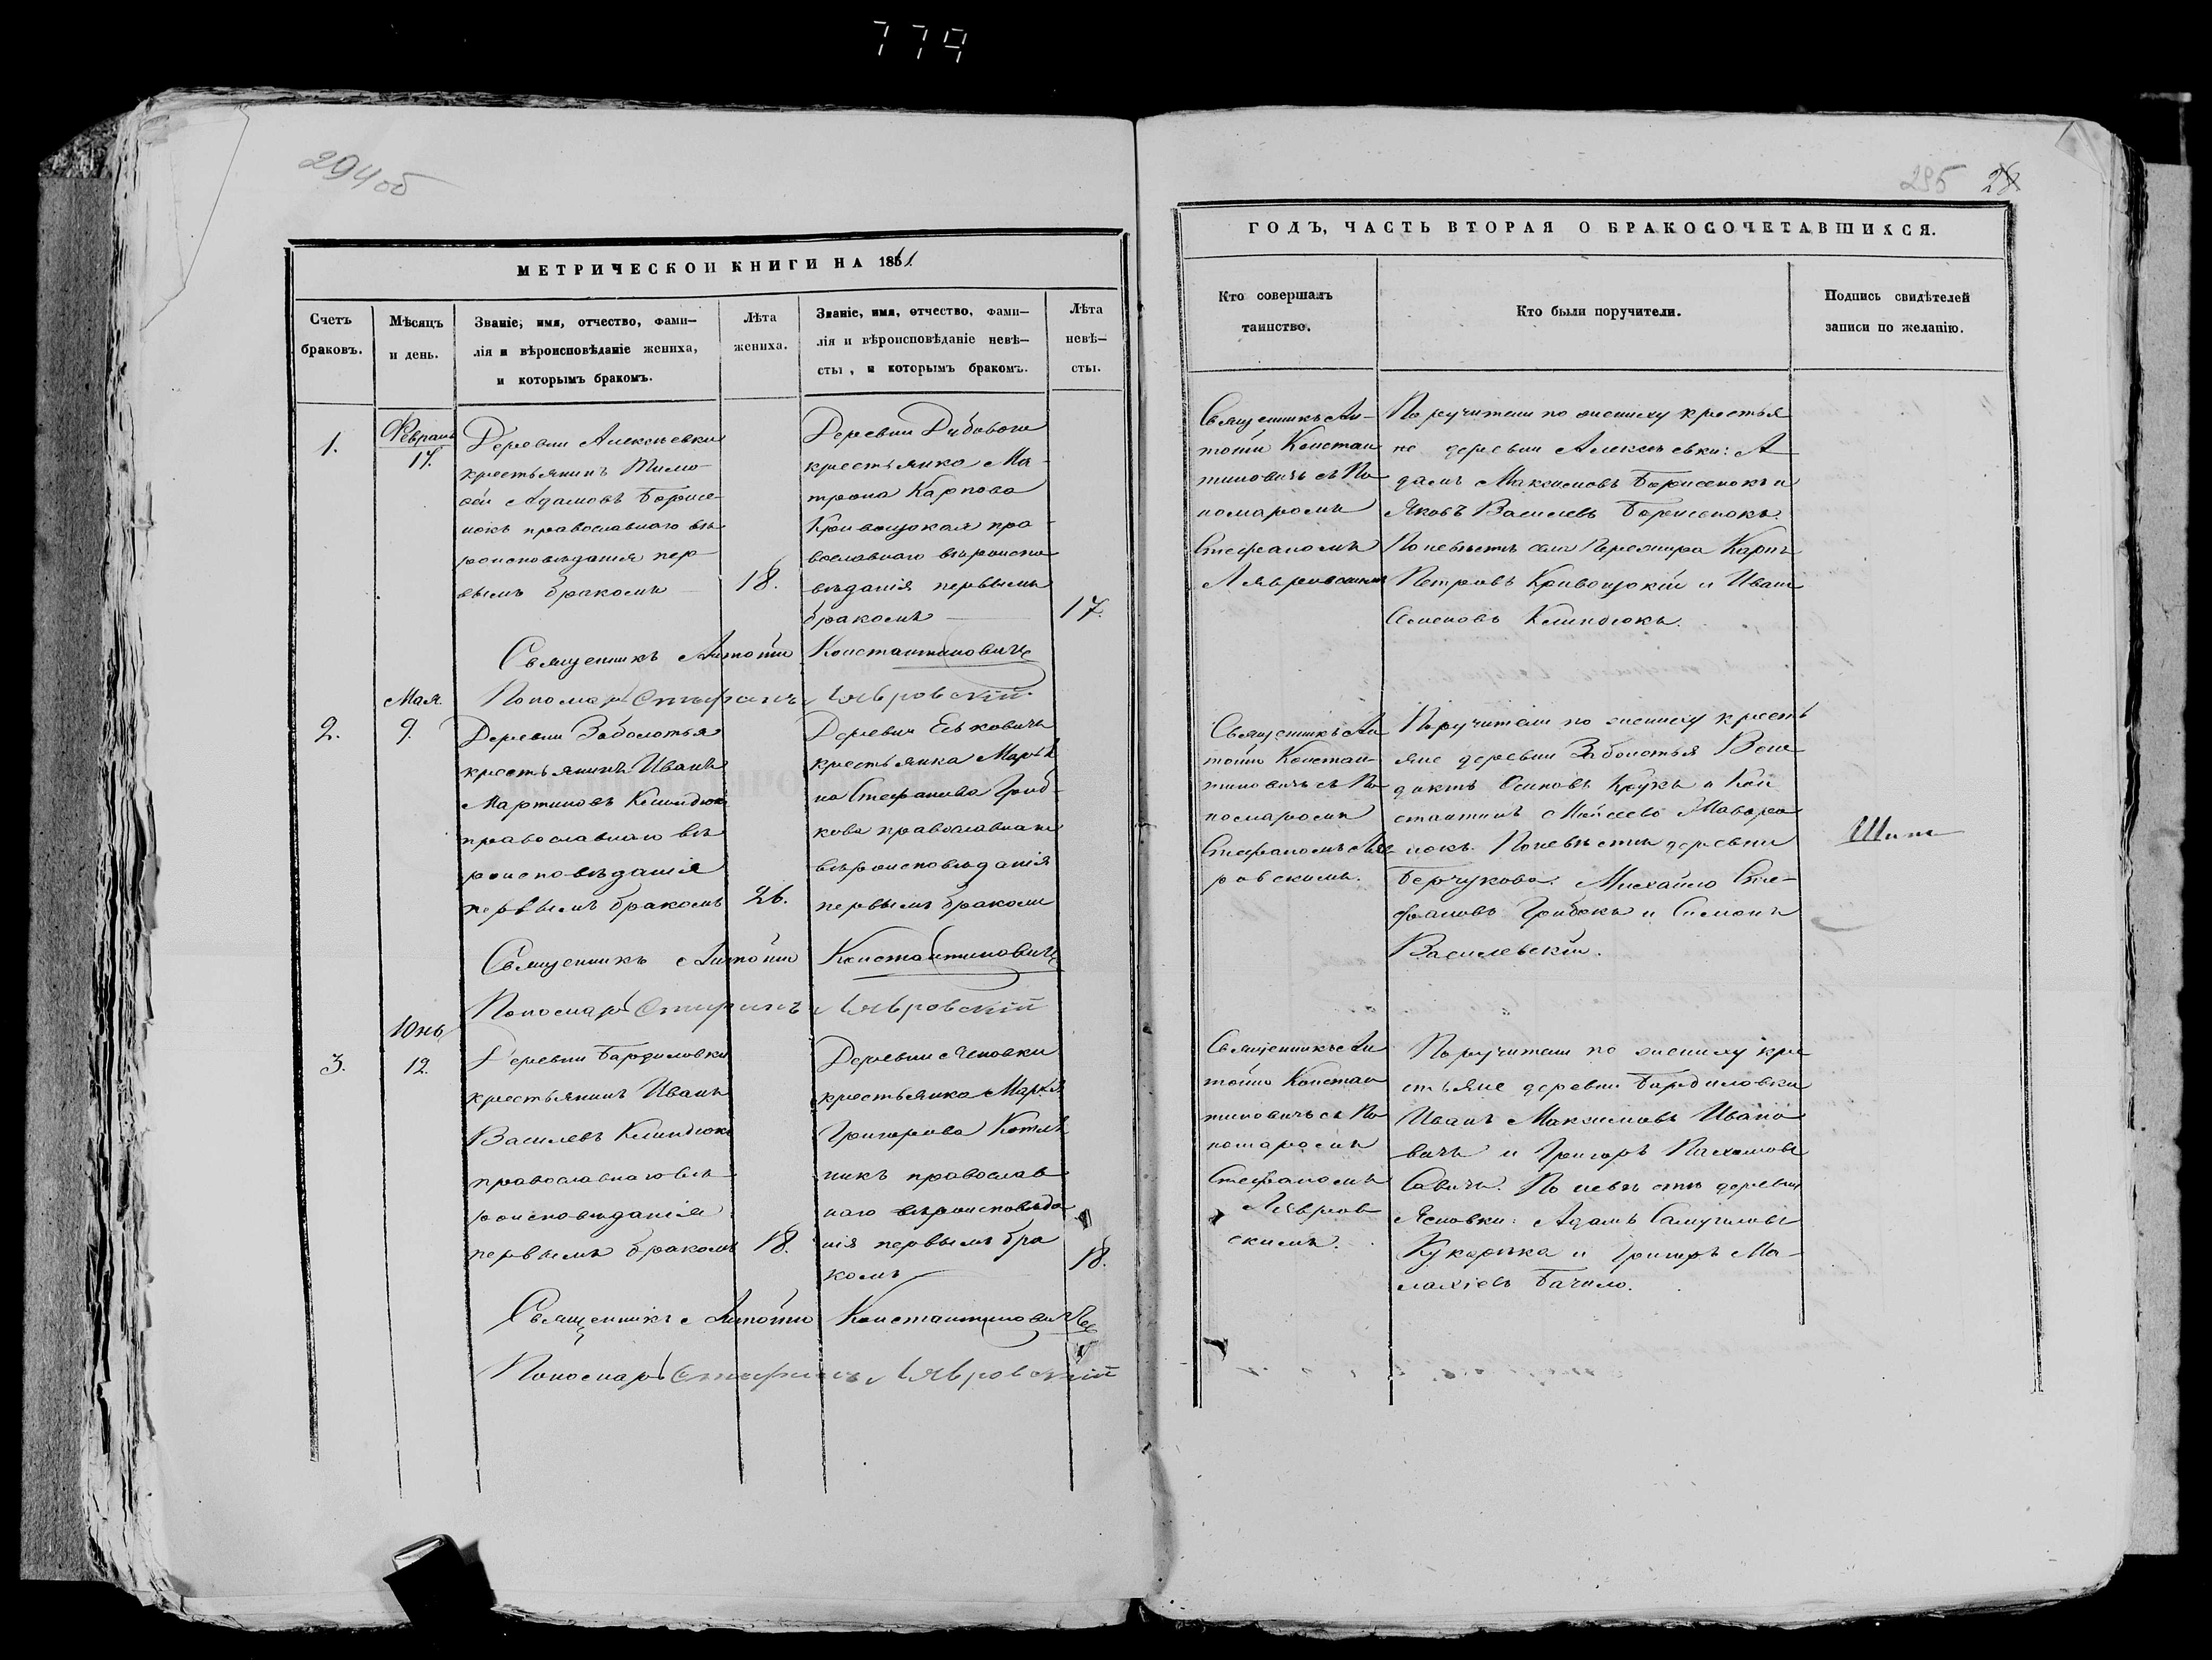 779
294об
МЕТРИЧЕСКОЙ КНИГИ НА 1861.
Счетъ
браковъ.
Мѣсяцъ
и день.
Званіе, имя, отчество, фами-
лія и вѣроисповѣданіе жениха,
и которымъ бракомъ.
Лѣта
жениха.
Званіе, имя, отчество, фами-
лія и вѣроисповѣданіе невѣ-
сты, и которымъ бракомъ.
Лѣта
невѣ-
сты.
1.
Февраль
17.
Деревни Алексѣевки
крестьянинъ Тимо-
ѳей Адамовъ Борисе-
нокъ православнаго вѣ-
роисповѣданія пер-
вымъ бракомъ
18.
Деревни Дубоваго
крестьянка Ма-
трона Карпова
Кривоцокая пра-
вославнаго вѣроиспо-
вѣданія первымъ
бракомъ
17.
Священникъ Антоній Константиновичъ
Пономарь Стефанъ Лявровскій
2.
Мая
9.
Деревни Заболотья
крестьянинъ Иванъ
Мартиновъ Клиндюкъ
православнаго вѣ-
роисповѣданія
первымъ бракомъ
26.
Деревни Еськовичъ
крестьянка Марья-
на Стефанова Гриб-
кова православнаго
вѣроисповѣданія
первымъ бракомъ
Священникъ Антоній Константиновичъ
Пономарь Стефанъ Лявровскій
3.
Юнь
12.
Деревни Бардиловки
крестьянинъ Иванъ
Василевъ Клиндюкъ
православнаго вѣ-
роисповѣданія
первымъ бракомъ
18.
Деревни Ясновки
крестьянка Марья
Григорова Котль
никъ православ
наго вѣроисповѣда
нія первымъ бра
комъ
18.
Священникъ Антоній Константиновичъ
Пономарь Стефанъ Лявровскій
295 28
ГОДЪ, ЧАСТЬ ВТОРАЯ О БРАКОСОЧЕТАВШИХСЯ.
Кто совершалъ
таинство.
Кто были поручители.
Подпись свидѣтелей
записи по желанію.
Священникъ Ан-
тоній Констан
тиновичъ съ По-
номаромъ
Стефаномъ
Лявровскимъ
Поручители по жениху крестья
не деревни Алексѣевки: А
дамъ Максимовъ Борисенокъ и
Яковъ Василевъ Борисенокъ.
По невѣстѣ села Карпъ
Петровъ Кривоцокій и Иванъ
Семеновъ Клиндюкъ.
Священникъ Ан
тоній Констан-
тиновичъ съ По-
номаромъ
Стефаномъ Ляв-
ровскимъ.
Поручители по жениху кресть
яне деревни Заболотья Вене
диктъ Осиповъ Крукъ и Кон
стантинъ Мойсеевъ
нокъ. По невѣстѣ деревни
Берчукова. Михайло Сте-
фановъ Грибокъ и Симонъ
Василевскій.
Священникъ Ан
тоній Констан
тиновичъ съ По-
номаромъ
Стефаномъ
Лявров
скимъ.
Поручители по жениху кре
стьяне деревни Бардиловки
Иванъ Максимовъ Ивано
вичъ и Григоръ Пахомовъ
Савичъ. По невѣстѣ деревни
Ясновки: Адамъ Самуиловъ
Кукарека и Григоръ Ма-
лахіевъ Бачило.